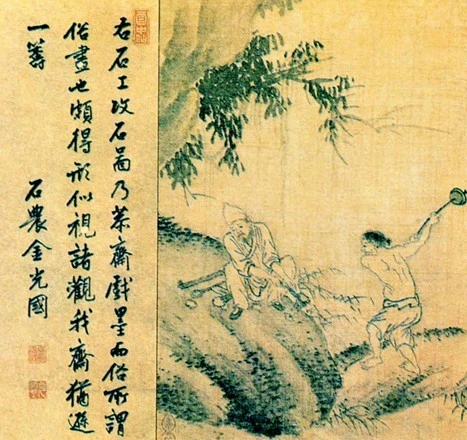 右石工攻石啚乃恭齋戲墨而俗所謂
俗畫也頗得形似視諸觀我齋猶遜
一籌
石農金光國